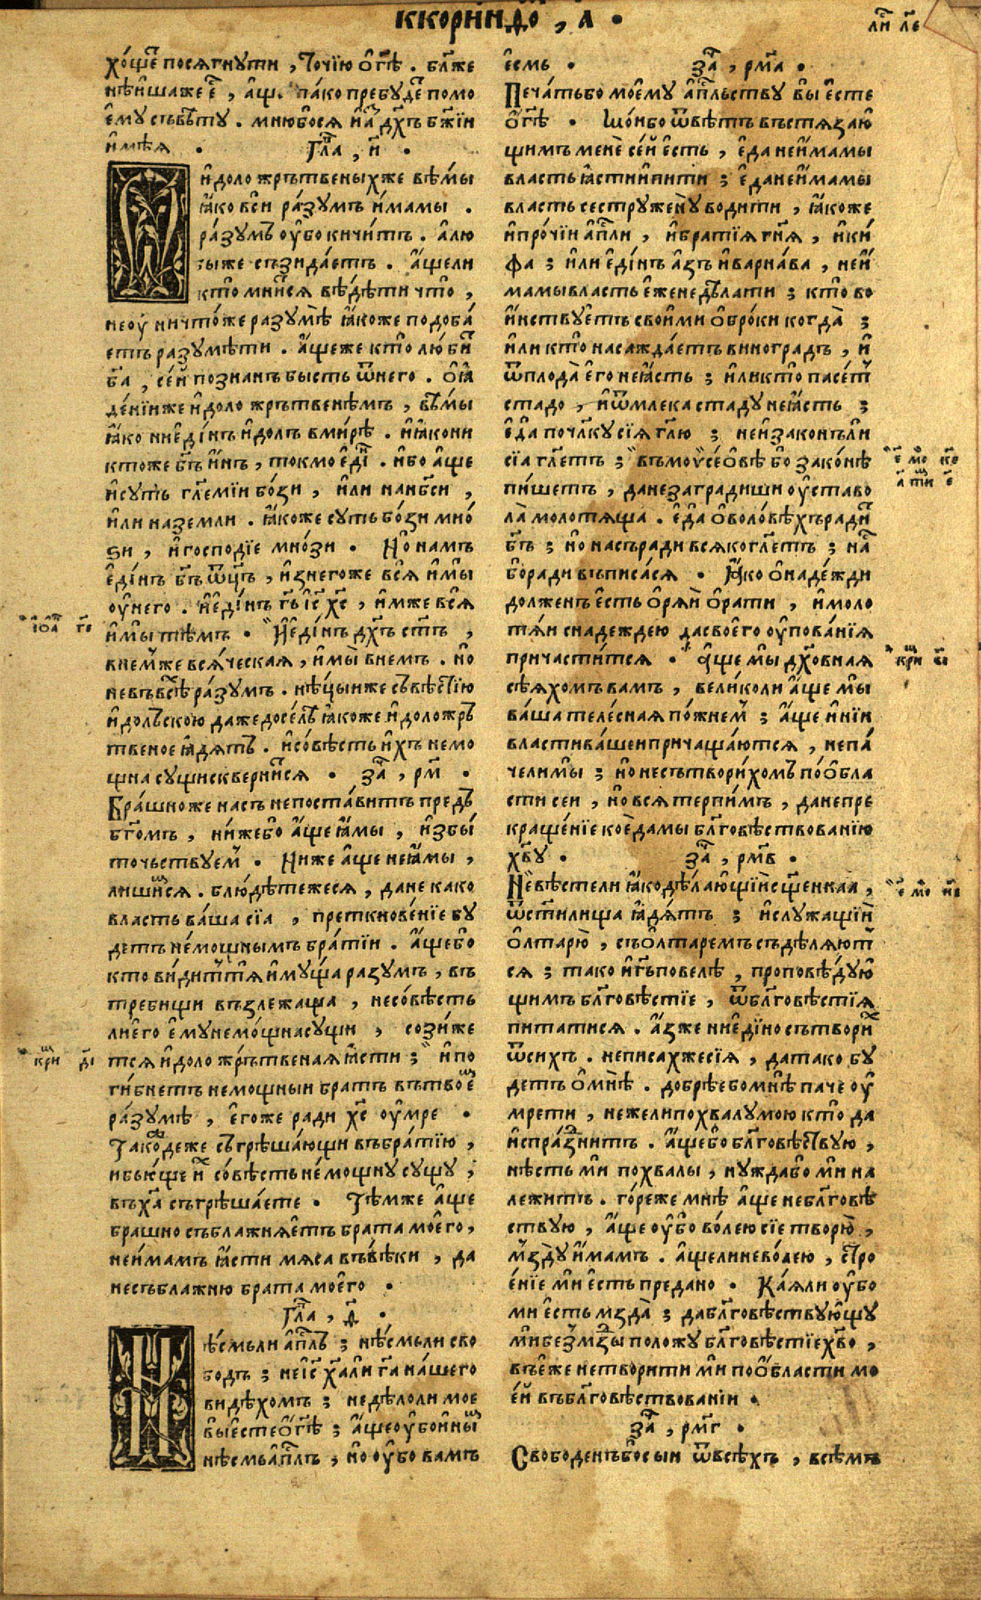 ккори́нѳо , а҃ •
ли́ ле
хо́щеⷮ посѧгнути , То́чїю ѡ҆ г҃ѣ . бл҃же
нѣ́йшаже е҆ⷭ , а҆щ. та́ко пребу́деⷮ по мо
е҆му съвѣ́ту . мнюбосѧ и҆а҆́ дх҃ъ бж҃їи
и҆мѣ́ѧ • Гла̀ , и҃ •
и҆́доло жръ́твеныхже вѣ́мы
ꙗ҆́ко всѝ ра́зумъ и҆́мамы .
ра́зумъ оу҆́бо кичи́тъ . а҆лю
бы́же съзида́етъ . а҆́щели
кто̀ мни́тсѧ вѣ́дѣти что̀ ,
неоу҆̀ ничто́же разумѣ̀ ꙗ҆́коже подоба́
етъ разумѣ́ти . а҆́щеже кто̀ лю́биⷮ
б҃а , се́й позна́нъ бысть ѿ него̀ . Ѡ҆ ꙗ҆
де́нїиже и҆́доло жръ́твенѣмъ , вѣ́мы
ꙗ҆́ко ни е҆ди́нъ и҆́долъ в ми́рѣ . и҆ ꙗ҆́ко ни
ктоже бг҃ъ и҆́нъ , токмо е҆ди́нъ . и҆́бо а҆́ще
и҆ суть гл҃емїи бо́зи , и҆ли на нб҃си ,
и҆́ли на земли . ꙗ҆́коже суть бо́зи мно́
ѕи , и҆ господїе мно́зи • Но̀ намъ
е҆ди́нъ бг҃ъ ѻ҆ц҃ъ , и҆з негоже всѧ̀ и҆ мы̀
оу҆ него . и҆ е҆ди́нъ г҃ь і҆с҃ х҃с , и҆́мже всѧ̀
и҆ мы̀ тѣ́мъ • И҆ е҆ди́нъ дх҃ъ ст҃ъ ,
в не́мже всѧ́ческаѧ , и҆ мы̀ в не́мъ . но̀
не въ всѣ́хъ ра́зумъ . нѣ́цыиже съвѣ́стїю
и҆́долъскою да́же досе́лѣ ꙗ҆́коже и҆́доложръ
твеное ꙗ҆дѧ́тъ . и҆ со́вѣсть и҆́хъ немо
щна сущи скверни́тсѧ • За̀ , рм҃ •
Бра́шноже насъ непоста́витъ предъ
бг҃омъ , ни́жебо а҆́ще ꙗ҆мы̀ , и҆збы́
точьствуемъ • Ниже а҆́ще не ꙗ҆мы̀ ,
лиши́мсѧ . блюдѣ́тежесѧ , да не како
власть ва́ша сїа , преткнове́нїе бу
детъ не́мощнымъ бра́тїи . а҆́щебо
кто ви́дитъ тѧ̀ и҆му́ща ра́зумъ , въ
требищи възлежа́ща , не со́вѣсть
ли е҆го̀ е҆му не́мощна сущи , сози́же
тсѧ и҆́доло жръ́твенаѧ ꙗ҆́сти ; и҆ по
ги́бнетъ немощныи братъ въ твое҆́мъ
ра́зумѣ , е҆гоже ради х҃с оу҆́мре •
Та́кодеже съгрѣша́ющи въ бра́тїю ,
и бью́ще и҆́хъ со́вѣсть не́мощну сущу ,
въ х҃а съгрѣша́ете • Тѣ́мже а҆́ще
брашно съблажнѧ́етъ брата мое҆го̀ ,
не и҆́мамъ ꙗ҆́сти мѧ́са въ вѣ́ки , да
не съблажню брата мое҆го̀ •
Гла̀ , ѳ҃ •
нѣ́смьли а҆пл҃ъ ; нѣ́смьли сво
бодъ ; не і҆с҃ х҃али г҃а на́шего
ви́дѣхомъ ; не дѣ́лоли мое
вы̀ есте ѡ҆ г҃ѣ ; а҆́ще оу҆́бо и҆ны́мъ
нѣ́смь а҆пл҃ъ , но̀ оу҆́бо вамъ
е҆́смь • За̀ , рм҃а •
Печа́тьбо мое́му а҆пл҃ьству вы̀ есте
ѡ҆ г҃ѣ • Мо́йбо ѿвѣ́тъ въстѧзаю
щимъ менѐ се́й е҆́сть , е҆да̀ не и҆́мамы
власть ꙗ҆́сти и҆ пи́ти ; е҆да̀ не и҆́мамы
власть сестру жену̀ води́ти , ꙗ҆́коже
и҆ про́чїи а҆пл҃и , и҆ бра́тїѧ гн҃ѧ , и҆ ки́
фа ; и҆ли е҆ди́нъ а҆́зъ и҆ варна́ва , не и҆́
мамы власть е҆́же не дѣ́лати ; кто̀ во
и҆́нствуетъ свои́ми ѻ҆бро́ки когда̀ ;
и҆ли кто̀ насажда́етъ виногра́дъ , и҆
ѿ плода̀ е҆го̀ не ꙗ҆́сть ; и҆ли кто̀ пасе́тъ
ста́до , и҆ ѿ млека стаду не ꙗ҆́сть ;
е҆да̀ по чл҃ку сїѧ̀ гл҃ю ; не и҆ зако́нъли
сїа гл҃етъ ; въ мѡѵсе́ѡвѣ бо зако́нѣ
пи́шетъ , да не загради́ши оу҆ста во
ла̀ молотѧ́ща . е҆да̀ ѡ҆ воло́вѣхъ ради́тъ
бг҃ъ ; и҆ но̀ насъ ра́ди всѧ́ко гл҃етъ ; на́съ
бо ра́ди въписа́сѧ • Ꙗ҆́ко ѡ҆ наде́жди
до́лженъ е҆сть ѻ҆рѧ́й ѻ҆ра́ти , и҆ моло
тѧ́и с надеждею да своего оу҆пова́нїѧ
причасти́тсѧ • А҆́ще мы̀ дх҃овнаѧ
сѣ́ѧхомъ вамъ , вели́коли а҆́ще мы̀
ва́ша теле́снаѧ по́жнемъ ; а҆́ще и҆ ни́и
власти ва́шеи причаща́ютсѧ , не па́
чели мы̀ ; но̀ не сътвори́хомъ по ѻ҆бла
сти сеи , но̀ всѧ̀ терпи́мъ , да не пре
кращенїе ко́е да́мы бл҃говѣствованїю
хв҃у • За̀ , рм҃в •
Не вѣ́стели ꙗ҆́ко дѣлающїи сщ҃еннаа ,
ѿ ст҃и́лища ꙗ҆дѧ́тъ ; и҆ служащїи
ѻ҆лтарю̀ , съ ѻ҆лтаремъ съдѣлѧ́ют
сѧ ; тако и҆ г҃ь повелѣ̀ , проповѣ́дую
щимъ бл҃говѣстїе , ѿ бл҃говѣстїѧ
питатисѧ . А҆́зже ни е҆ди́но сътвори́хъ
ѿ си́хъ . не писа́хже сїѧ , да тако бу
детъ ѡ҆ мнѣ̀ . добрѣ́е бо мнѣ̀ паче оу҆
мрети , нежели похвалу мою кто̀ да
и҆спра́знитъ . а҆́щебо бл҃говѣствую ,
нѣ́сть ми̑ похвалы̀ , ну́жда бо ми̑ на
лежи́тъ . го́реже мнѣ̀ а҆́ще не бл҃говѣ
ствую , а҆́ще оу҆́бо во́лею сїе творю̀ ,
мзду и҆́мамъ . а҆́щели нево́лею , стро
е҆́нїе ми̑ е҆сть предано • Ка́ѧли оу҆бо
ми е҆́сть мзда̀ ; да бл҃говѣствую́щу
ми̑ без̾ мзды̀ положу бл҃говѣстїе хв҃о ,
въ е҆́же не твори́ти ми̑ по ѻ҆бласти мо
е҆́й въ бл҃говѣствованїи •
За̀ , рм҃г •
Свободенъбо сыи ѿ всѣ́хъ , всѣ́мъ
і҆ѡа҆́ г҃е
кри д҃і
е҆ мо̀ к҃е
а҃ ти е҃
кри в҃і
е҆ мо̀ и҃і